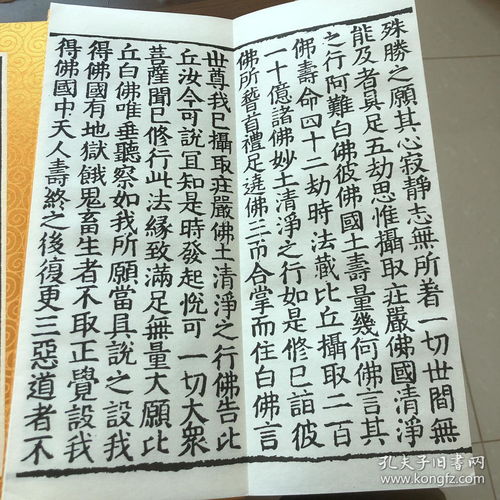 殊勝之願其心寂靜志無所著一切世間無
能及者具足五劫思惟攝取莊嚴佛國清淨
之行阿難白佛彼佛國土壽量幾何佛言其
佛壽命四十二劫時法藏比丘攝取二百
一十億諸佛妙土清淨之行如是修已詣彼
佛所稽首禮足遶佛三帀合掌而住白佛言
世尊我已攝取莊嚴佛土清淨之行佛告比
丘汝今可說宜知是時發起悅可一切大衆
菩薩聞已修行此法緣致滿足無量大願比
丘白佛唯垂聽察如我所願當具說之設我
得佛國有地獄餓鬼畜生者不取正覺設我
得佛國中天人壽終之後復更三惡道者不
孔夫子旧书网
www.kongfz.com